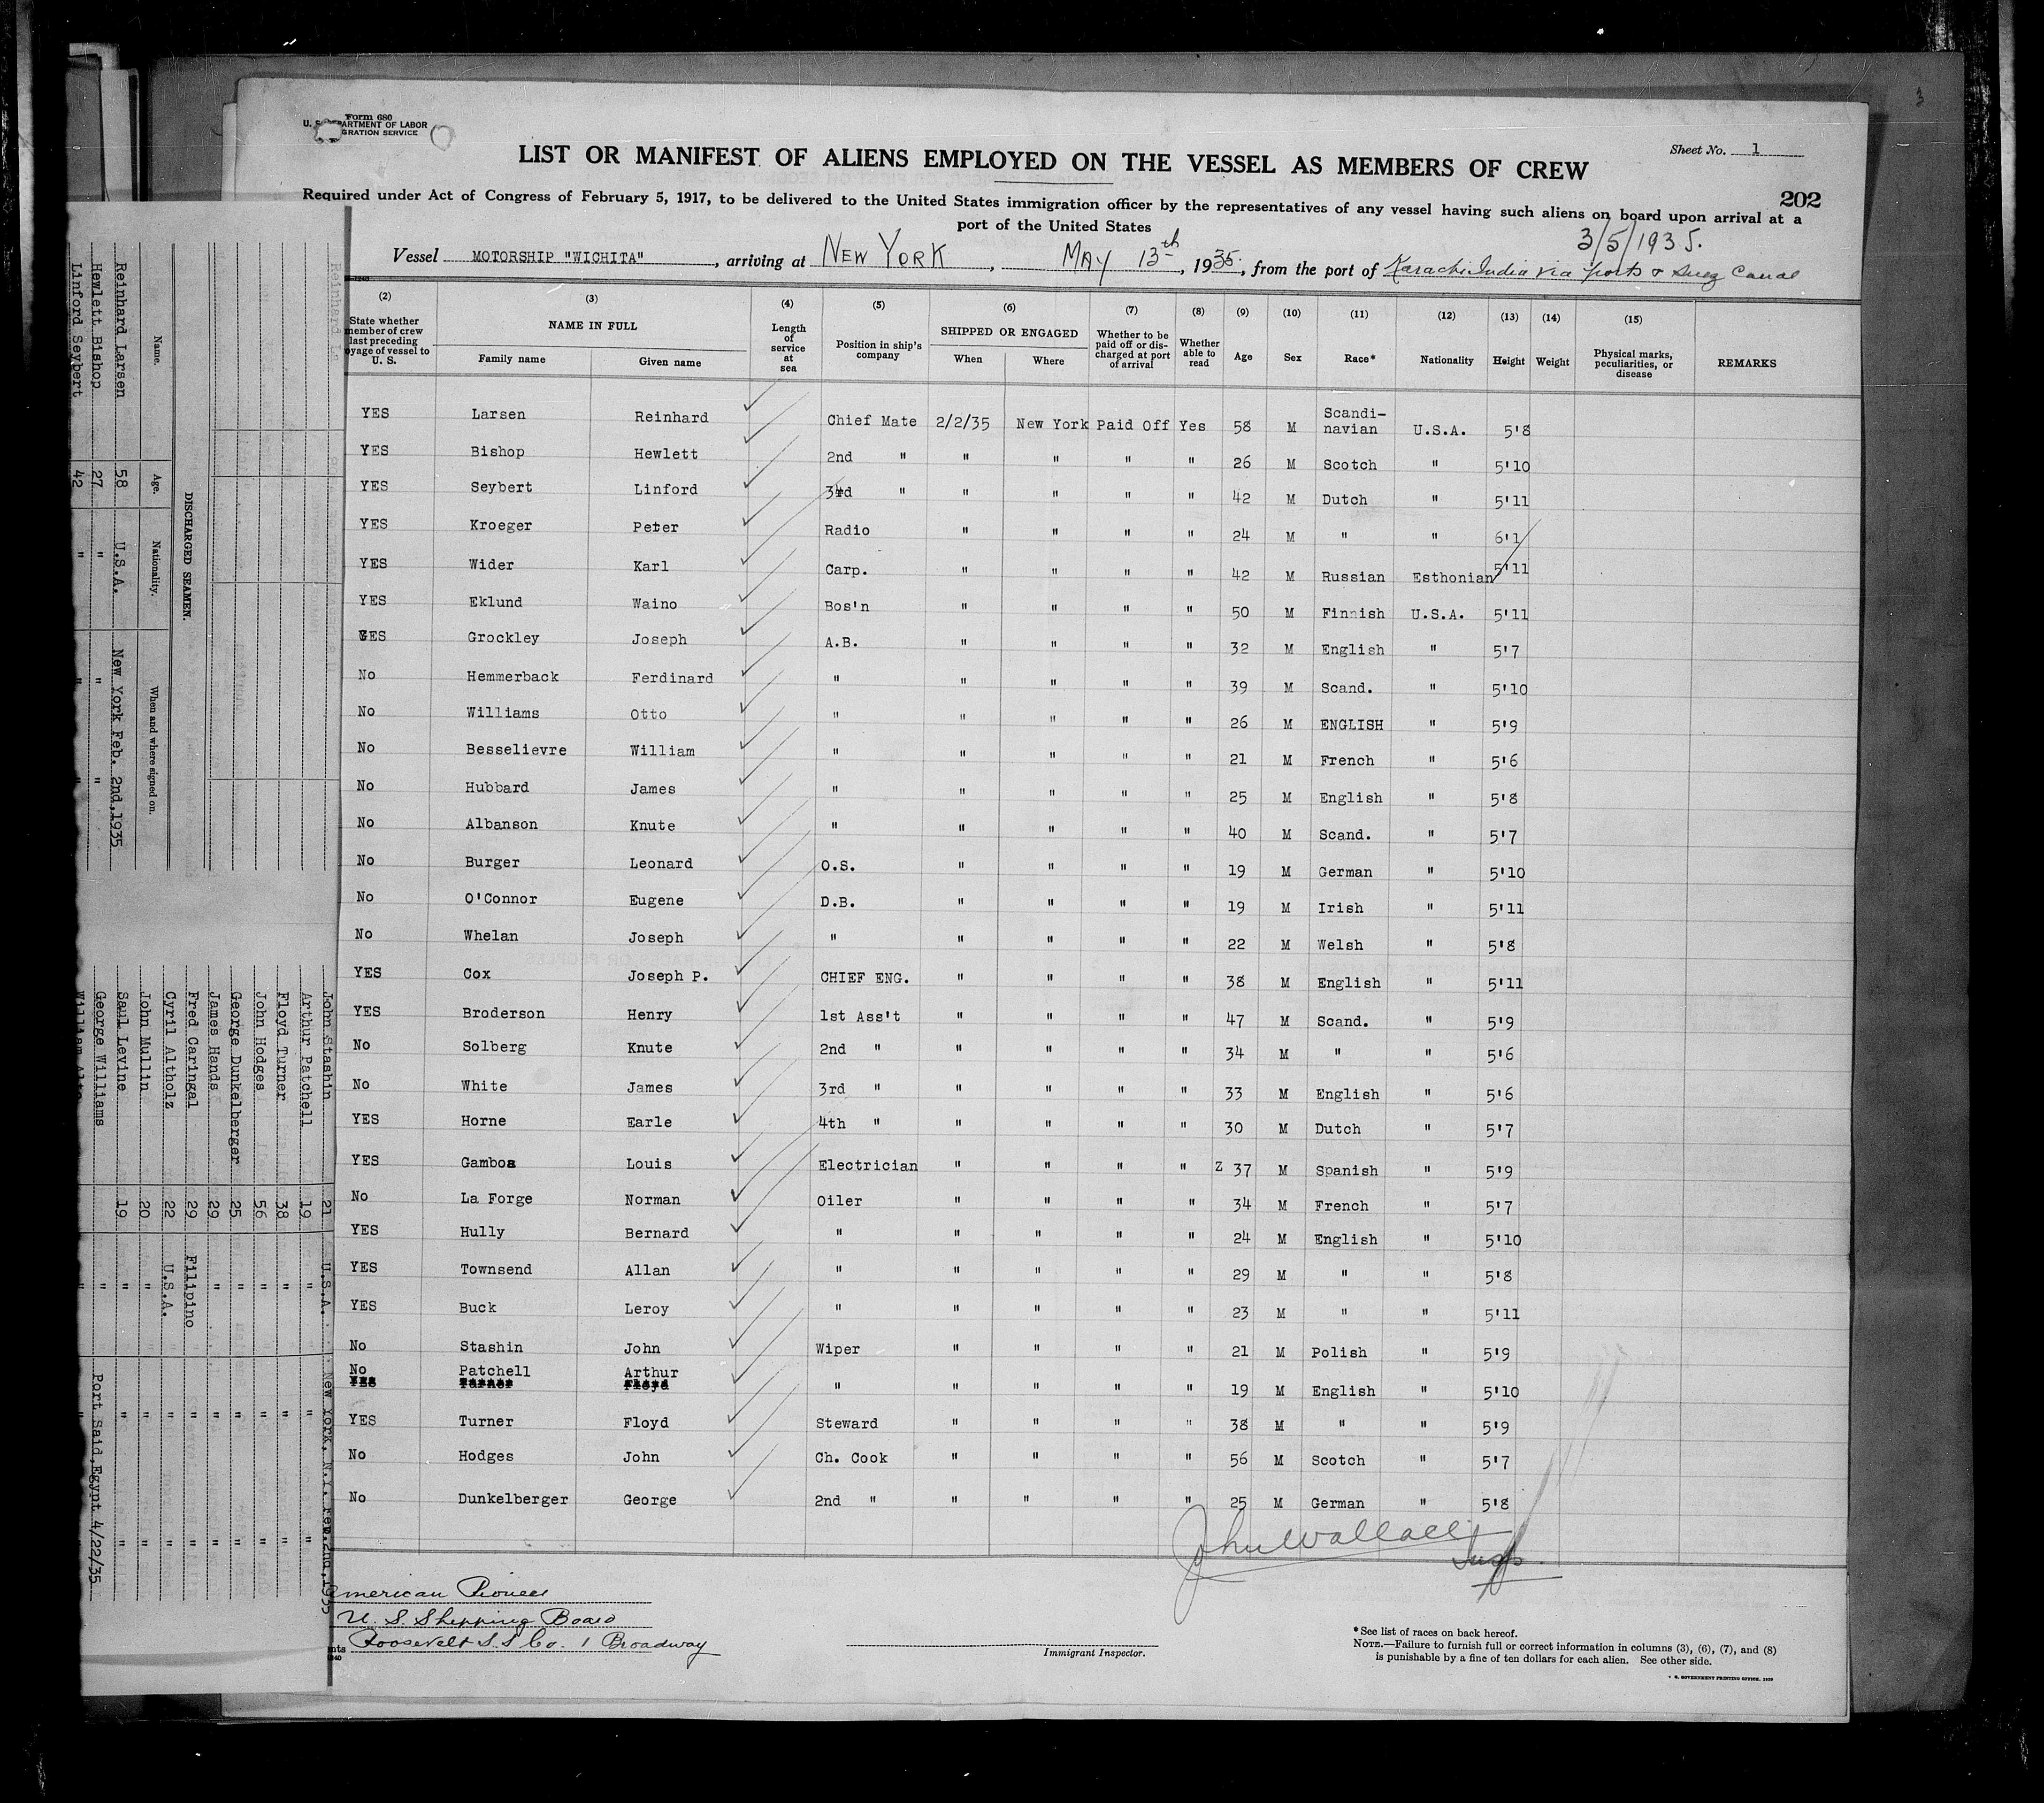 Form 680
U. S. DEPARTMENT OF LABOR
IMMIGRATION SERVICE
LIST OR MANIFEST OF ALIENS EMPLOYED ON THE VESSEL AS MEMBERS OF CREW
Sheet No. 1
202
Required under Act of Congress of February 5, 1917, to be delivered to the United States immigration officer by the representatives of any vessel having such aliens on board upon arrival at a
port of the United States
3/5/1935.
Vessel MOTORSHIP "WICHITA", arriving at NEW YORK, MAY 13th, 1935, from the port of Karachi India via ports & Suez Canal
(2) (3) (4) (5) (6) (7) (8) (9) (10) (11) (12) (13) (14) (15)
State whether member of crew last preceding voyage of vessel to U. S. NAME IN FULL Family name Given name Length of service at sea Position in ship's company SHIPPED OR ENGAGED When Where Whether to be paid off or discharged at port of arrival Whether able to read Age Sex Race* Nationality Height Weight Physical marks, peculiarities, or disease REMARKS
YES Larsen Reinhard Chief Mate 2/2/35 New York Paid Off Yes 58 M Scandi-navian U.S.A. 5'8
YES Bishop Hewlett 2nd " " " " " 26 M Scotch " 5'10
YES Seybert Linford 3rd " " " " " 42 M Dutch " 5'11
YES Kroeger Peter Radio " " " " 24 M " " 6'1
YES Wider Karl Carp. " " " " 42 M Russian Esthonian 5'11
YES Eklund Waino Bos'n " " " " 50 M Finnish U.S.A. 5'11
YES Grockley Joseph A.B. " " " " 32 M English " 5'7
No Hemmerback Ferdinard " " " " " 39 M Scand. " 5'10
No Williams Otto " " " " " 26 M ENGLISH " 5'9
No Besselievre William " " " " " 21 M French " 5'6
No Hubbard James " " " " " 25 M English " 5'8
No Albanson Knute " " " " " 40 M Scand. " 5'7
No Burger Leonard O.S. " " " " 19 M German " 5'10
No O'Connor Eugene D.B. " " " " 19 M Irish " 5'11
No Whelan Joseph " " " " " 22 M Welsh " 5'8
YES Cox Joseph P. CHIEF ENG. " " " " 38 M English " 5'11
YES Broderson Henry 1st Ass't " " " " 47 M Scand. " 5'9
No Solberg Knute 2nd " " " " " 34 M " " 5'6
No White James 3rd " " " " " 33 M English " 5'6
YES Horne Earle 4th " " " " " 30 M Dutch " 5'7
YES Gamboa Louis Electrician " " " " Z 37 M Spanish " 5'9
No La Forge Norman Oiler " " " " 34 M French " 5'7
YES Hully Bernard " " " " " 24 M English " 5'10
YES Townsend Allan " " " " " 29 M " " 5'8
YES Buck Leroy " " " " " 23 M " " 5'11
No Stashin John Wiper " " " " 21 M Polish " 5'9
No Patchell Arthur " " " " " 19 M English " 5'10
YES Turner Floyd Steward " " " " 38 M " " 5'9
No Hodges John Ch. Cook " " " " 56 M Scotch " 5'7
No Dunkelberger George 2nd " " " " " 25 M German " 5'8
John Wallace
Insp.
American Pioneer
U. S. Shipping Board
Roosevelt S.S Co. 1 Broadway
Immigrant Inspector.
*See list of races on back hereof.
NOTE.—Failure to furnish full or correct information in columns (3), (6), (7), and (8)
is punishable by a fine of ten dollars for each alien. See other side.
DISCHARGED SEAMEN.
Name. Age. Nationality. When and where signed on.
Reinhard Larsen 58 U.S.A. New York Feb. 2nd, 1935
Hewlett Bishop 27 " " "
Linford Seybert 42 " " "
John Stashin 21 U.S.A. New York, N.Y. Feb. 2nd, 1935
Arthur Patchell 19 " " "
Floyd Turner 38 " " "
John Hodges 56 " " "
George Dunkelberger 25 " " "
James Hands 29 " " "
Fred Caringal 29 Filipino " "
Cyril Altholz 22 U.S.A. " "
John Mullin 20 " " "
Saul Levine 19 " " "
George Williams " Port Said, Egypt 4/22/35